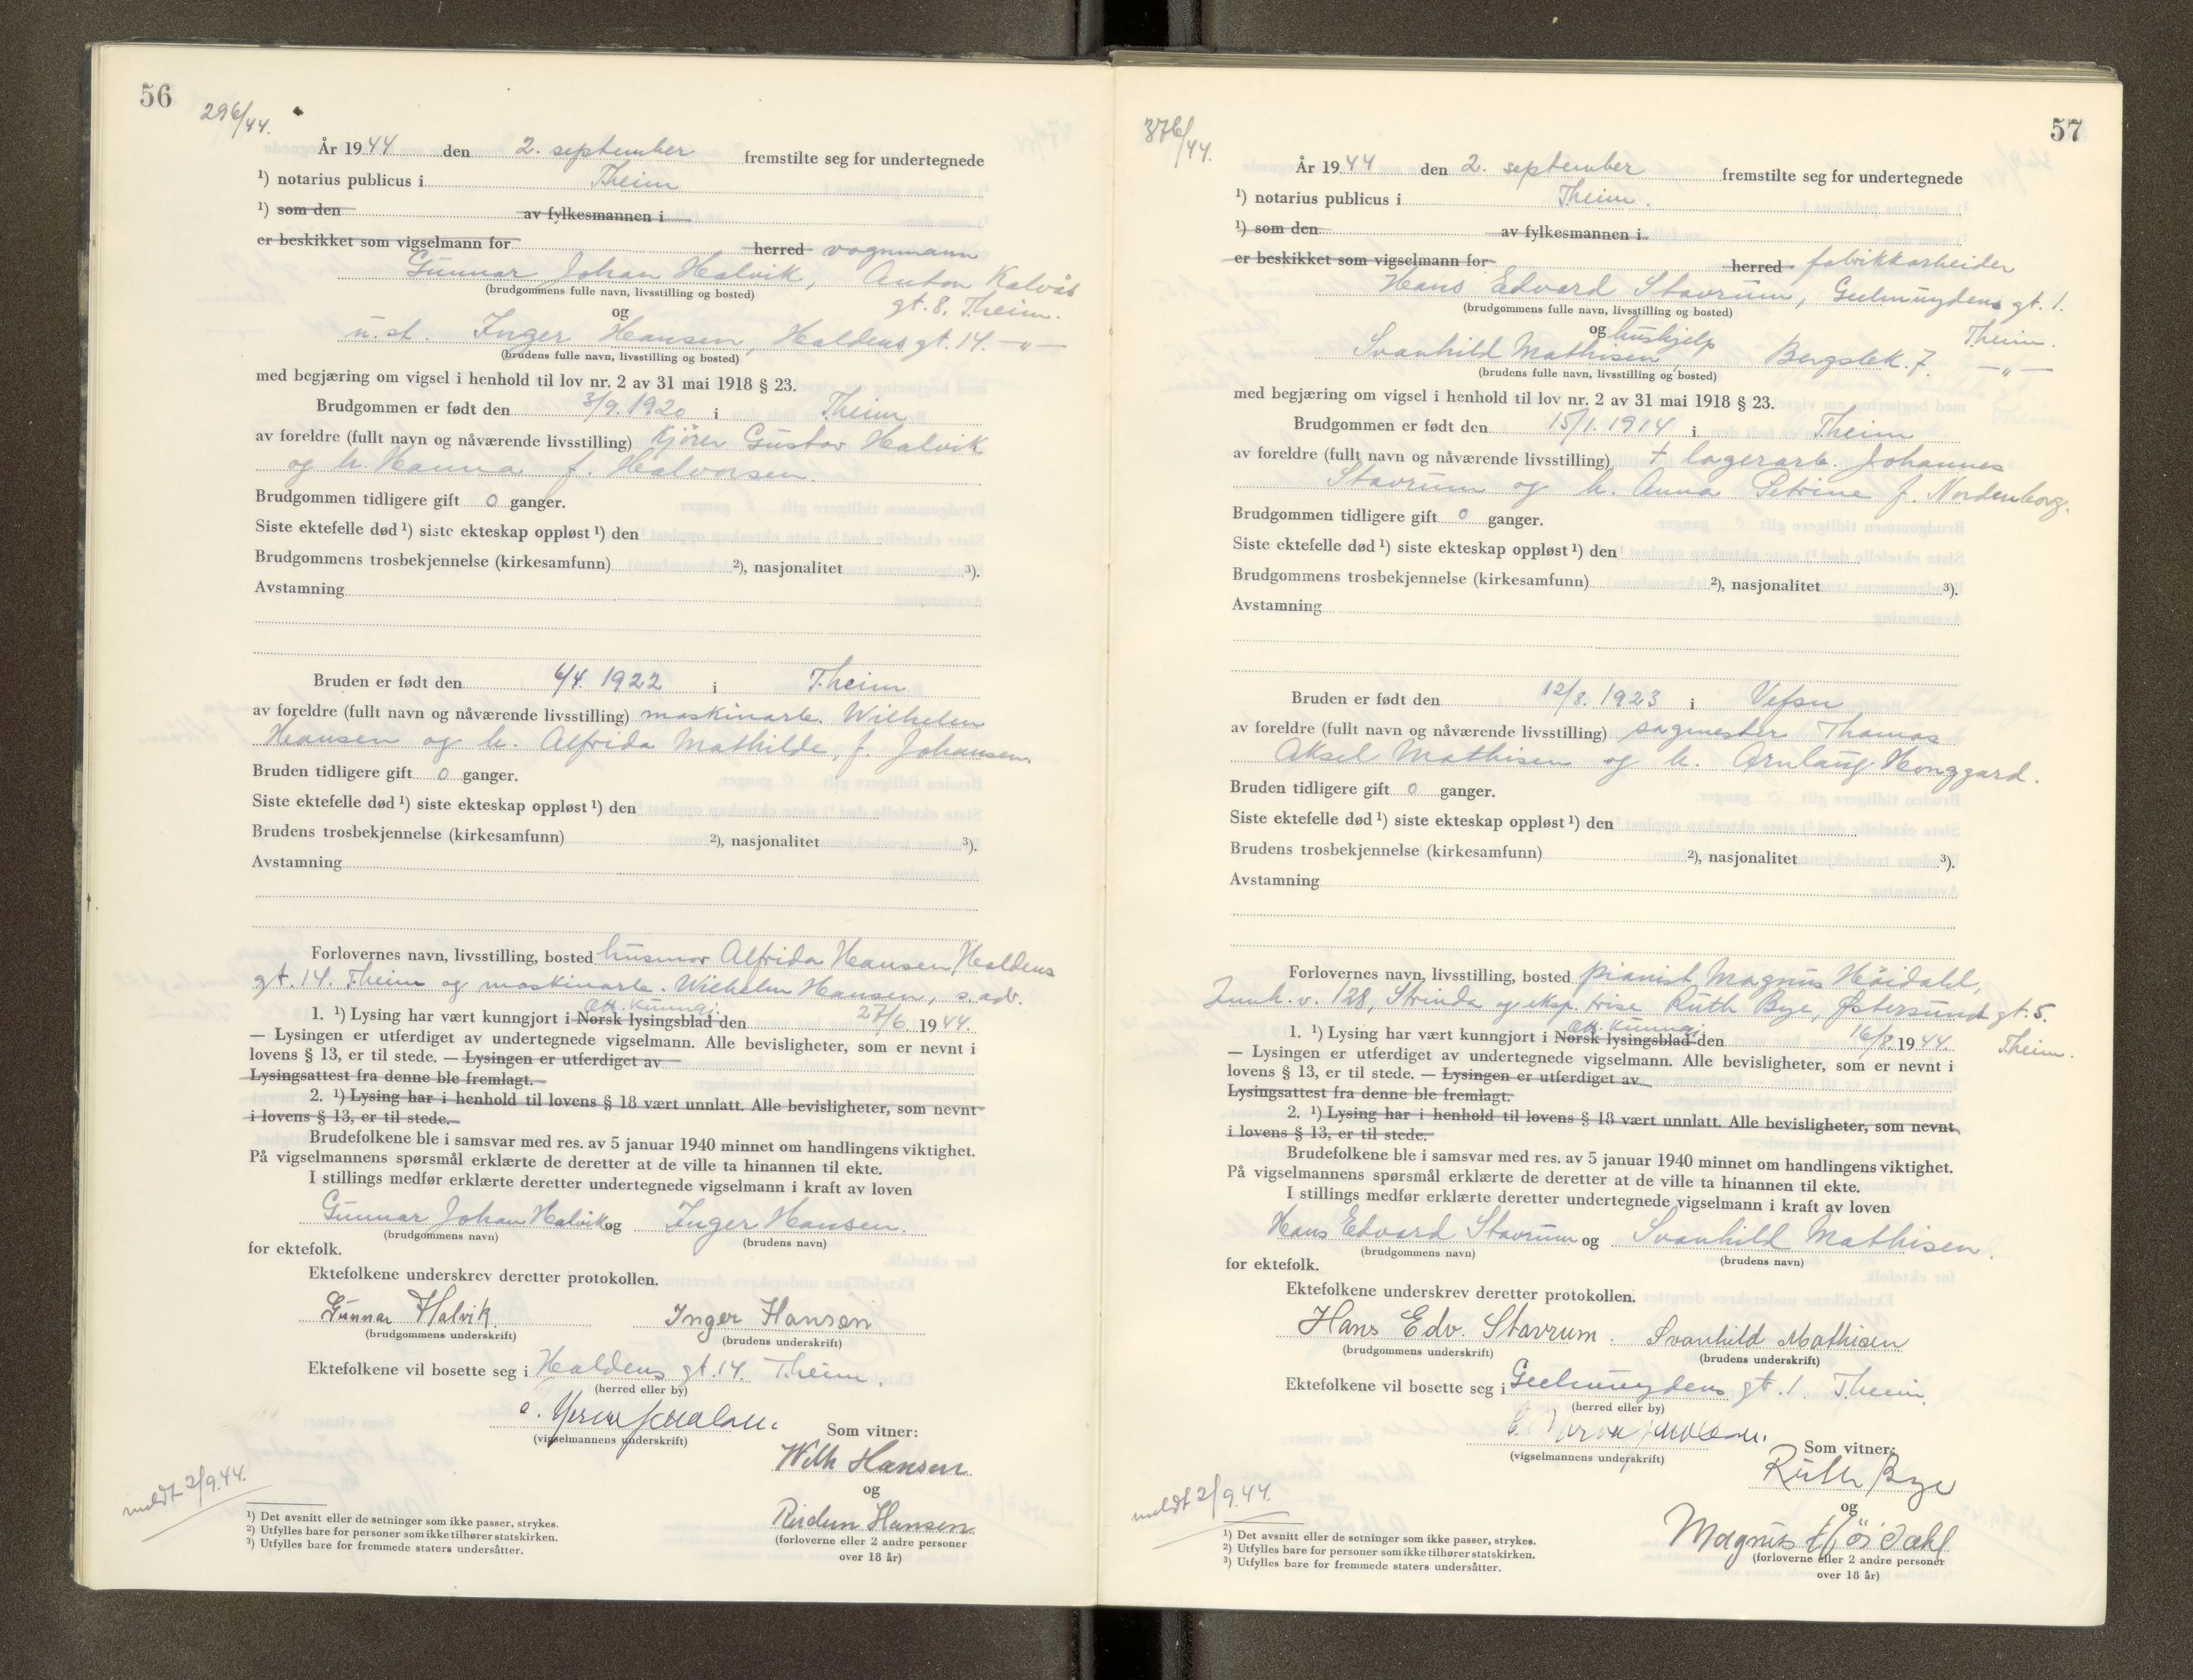 56
296/44.
År 1944 den 2. september fremstilte seg for undertegnede
¹) notarius publicus i Theim
¹) som den av fylkesmannen i
er beskikket som vigselmann for herred vognmann
Gunnar Johan Halvik, Anton Kalvås
(brudgommens fulle navn, livsstilling og bosted) gt. 8. Theim.
og
u.st. Inger Hansen, Haldens gt. 14. -"-
(brudens fulle navn, livsstilling og bosted)
med begjæring om vigsel i henhold til lov nr. 2 av 31 mai 1918 § 23.
Brudgommen er født den 3/9. 1920 i Theim
av foreldre (fullt navn og nåværende livsstilling) kjörer Gustav Halvik
og h. Hanna f. Halvorsen.
Brudgommen tidligere gift 0 ganger.
Siste ektefelle død ¹) siste ekteskap oppløst ¹) den
Brudgommens trosbekjennelse (kirkesamfunn) ²), nasjonalitet ³).
Avstamning
Bruden er født den 6/4. 1922 i Theim
av foreldre (fullt navn og nåværende livsstilling) maskinarb. Wilhelm
Hansen og h. Alfrida Mathilde, f. Johansen.
Bruden tidligere gift 0 ganger.
Siste ektefelle død ¹) siste ekteskap oppløst ¹) den
Brudens trosbekjennelse (kirkesamfunn) ²), nasjonalitet ³).
Avstamning
Forlovernes navn, livsstilling, bosted husmor Alfrida Hansen, Haldens
gt. 14. Theim og maskinarb. Wilhelm Hansen, s. adr.
off. kunngj.
1. ¹) Lysing har vært kunngjort i Norsk lysingsblad den 27/6 1944.
— Lysingen er utferdiget av undertegnede vigselmann. Alle bevisligheter, som er nevnt i
lovens § 13, er til stede. — Lysingen er utferdiget av
Lysingsattest fra denne ble fremlagt.
2. ¹) Lysing har i henhold til lovens § 18 vært unnlatt. Alle bevisligheter, som nevnt
i lovens § 13, er til stede.
Brudefolkene ble i samsvar med res. av 5 januar 1940 minnet om handlingens viktighet.
På vigselmannens spørsmål erklærte de deretter at de ville ta hinannen til ekte.
I stillings medfør erklærte deretter undertegnede vigselmann i kraft av loven
Gunnar Johan Halvik og Inger Hansen.
(brudgommens navn) (brudens navn)
for ektefolk.
Ektefolkene underskrev deretter protokollen.
Gunnar Halvik. Inger Hansen
(brudgommens underskrift) (brudens underskrift)
Ektefolkene vil bosette seg i Haldens gt. 14. Theim.
(herred eller by)
(vigselmannens underskrift) Som vitner:
Wilh Hansen
og
Reidun Hansen
(forloverne eller 2 andre personer
over 18 år)
meldt 2/9.44.
¹) Det avsnitt eller de setninger som ikke passer, strykes.
²) Utfylles bare for personer som ikke tilhører statskirken.
³) Utfylles bare for fremmede staters undersåtter.
57
376/44.
År 1944 den 2. september fremstilte seg for undertegnede
¹) notarius publicus i Theim.
¹) som den av fylkesmannen i
er beskikket som vigselmann for herred fabrikkarbeider
Hans Edvard Stavrum, Geelmuydens gt. 1.
(brudgommens fulle navn, livsstilling og bosted)
og hushjelp Theim.
Svanhild Mathisen, Bergsbk. 7. -"-
(brudens fulle navn, livsstilling og bosted)
med begjæring om vigsel i henhold til lov nr. 2 av 31 mai 1918 § 23.
Brudgommen er født den 15/1. 1914 i Theim
av foreldre (fullt navn og nåværende livsstilling) † lagerarb. Johannes
Stavrum og h. Anna Petrine f. Nordenborg.
Brudgommen tidligere gift 0 ganger.
Siste ektefelle død ¹) siste ekteskap oppløst ¹) den
Brudgommens trosbekjennelse (kirkesamfunn) ²), nasjonalitet ³).
Avstamning
Bruden er født den 12/8. 1923 i Vefsn
av foreldre (fullt navn og nåværende livsstilling) sagmester Thomas
Aksel Mathisen og h. Arnlaug Honggard.
Bruden tidligere gift 0 ganger.
Siste ektefelle død ¹) siste ekteskap oppløst ¹) den
Brudens trosbekjennelse (kirkesamfunn) ²), nasjonalitet ³).
Avstamning
Forlovernes navn, livsstilling, bosted pianist Magnus Höidahl,
v. 128, Strinda og eksp. trise Ruth Bye, Østersunds gt. 5.
off. kunngj. Theim.
1. ¹) Lysing har vært kunngjort i Norsk lysingsblad den 16/8. 1944.
— Lysingen er utferdiget av undertegnede vigselmann. Alle bevisligheter, som er nevnt i
lovens § 13, er til stede. — Lysingen er utferdiget av
Lysingsattest fra denne ble fremlagt.
2. ¹) Lysing har i henhold til lovens § 18 vært unnlatt. Alle bevisligheter, som nevnt
i lovens § 13, er til stede.
Brudefolkene ble i samsvar med res. av 5 januar 1940 minnet om handlingens viktighet.
På vigselmannens spørsmål erklærte de deretter at de ville ta hinannen til ekte.
I stillings medfør erklærte deretter undertegnede vigselmann i kraft av loven
Hans Edvard Stavrum og Svanhild Mathisen.
(brudgommens navn) (brudens navn)
for ektefolk.
Ektefolkene underskrev deretter protokollen.
Hans Edv. Stavrum. Svanhild Mathisen
(brudgommens underskrift) (brudens underskrift)
Ektefolkene vil bosette seg i Geelmuydens gt. 1. Theim.
(herred eller by)
(vigselmannens underskrift) Som vitner:
Ruth Bye
og
Magnus Höidahl
(forloverne eller 2 andre personer
over 18 år)
meldt 2/9.44.
¹) Det avsnitt eller de setninger som ikke passer, strykes.
²) Utfylles bare for personer som ikke tilhører statskirken.
³) Utfylles bare for fremmede staters undersåtter.